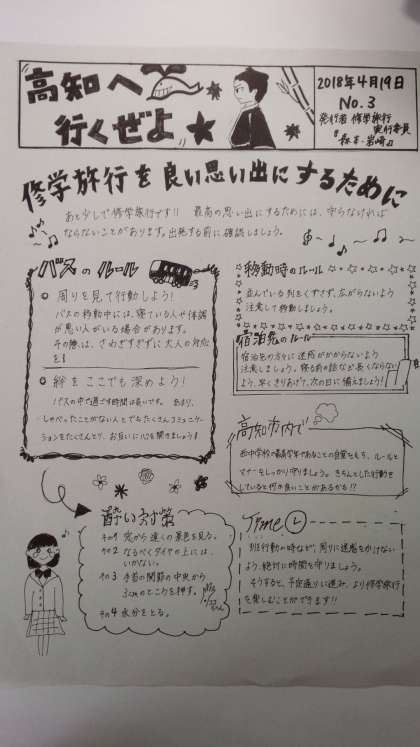 高知へ
行くぜよ
2018年4月19日
No.3
発行者 修学旅行
実行委員
修学旅行を良い思い出にするために
あと少しで修学旅行です!! 最高の思い出にするためには、守らなければ
ならないことがあります。出発する前に確認しましょう。
バスのルール
周りを見て行動しよう!
バスの移動中には、寝ている人や体調
が悪い人がいる場合があります。
その際は、さわぎすぎずに大人の対応
を!
絆をここでも深めよう!
バスの中で過ごす時間は長いです。 あまり、
しゃべったことがない人とでもたくさんコミュニケー
ションをたくさんとり、お互いに心を開きましょう!
移動時のルール
並んでいる列をくずさず、広がらないよう
注意して移動しましょう。
宿泊先のルール
宿泊先の方々に迷惑がかからないよう
注意しましょう。寝る前の話など長くならない
よう、早くきりあげて、次の日に備えましょう!
高知市内で
西中学校の最高学年であることの自覚をもち、ルールと
マナーをしっかり守りましょう。きちんとした行動を
していると何か良いことがあるかも!?
酔い対策
その1 窓から遠くの景色を見る。
その2 なるべくタイヤの上には、
いかない。
その3 手首の関節の中央から
3cmのところを押す。
その4 水分をとる。
Time
班行動の時などが、周りに迷惑をかけない
よう、絶対に時間を守りましょう。
そうすると、予定通りに進み、より修学旅行
を楽しむことができます!!